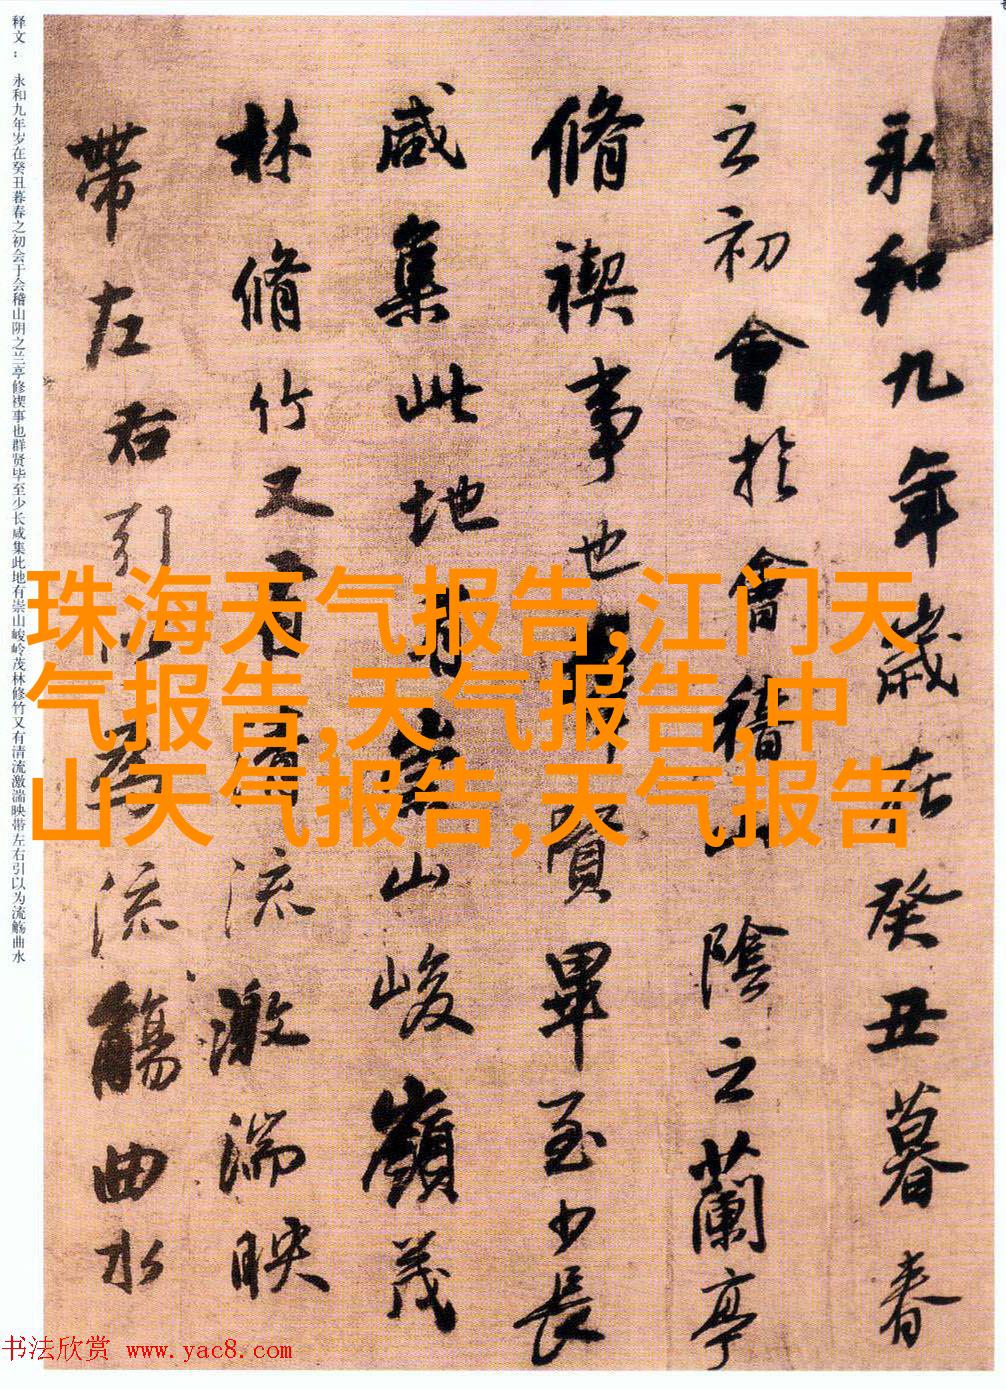 释文：永和九年岁在癸丑暮春之初会于会稽山阴之兰亭修禊事也群贤毕至少长咸集此地有崇山峻岭茂林修竹又有清流激湍映带左右引以为流觞曲水
永和九年歲在癸丑暮春
之初會於會稽山陰之蘭亭
脩禊事也群賢畢至少長
咸集此地有崇山峻嶺茂
林脩竹又有清流激湍映
帶左右引以為流觴曲水
珠海天气报告,江门天
气报告,天气报告,中
山天气报告,天气报告
书法欣赏 www.yac8.com